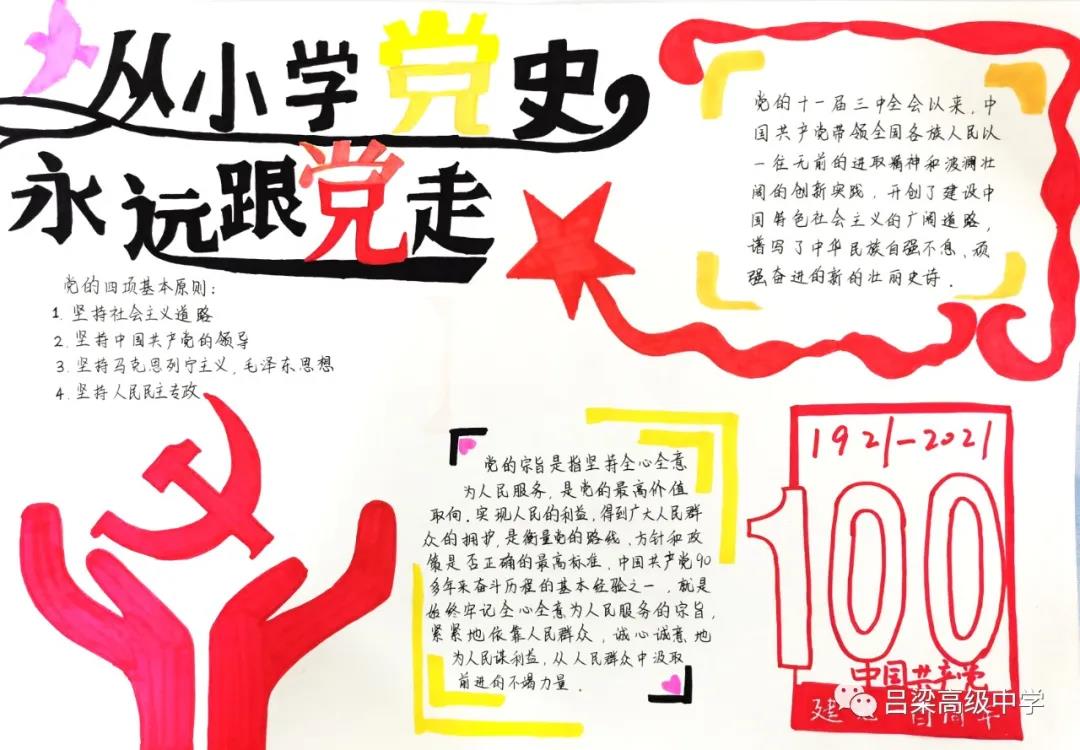 从小学党史
永远跟党走
党的四项基本原则：
1. 坚持社会主义道路
2. 坚持中国共产党的领导
3. 坚持马克思列宁主义，毛泽东思想
4. 坚持人民民主专政
党的十一届三中全会以来，中
国共产党带领全国各族人民以
一往无前的进取精神和波澜壮
阔的创新实践，开创了建设中
国特色社会主义的广阔道路，
谱写了中华民族自强不息，顽
强奋进的新的壮丽史诗．
党的宗旨是指坚持全心全意
为人民服务，是党的最高价值
取向．实现人民的利益，得到广大人民群
众的拥护，是衡量党的路线、方针和政
策是否正确的最高标准．中国共产党90
多年来奋斗历程的基本经验之一，就是
始终牢记全心全意为人民服务的宗旨，
紧紧地依靠人民群众，诚心诚意地
为人民谋利益，从人民群众中汲取
前进的不竭力量．
1921-2021
100
中国共产党
建
吕梁高级中学